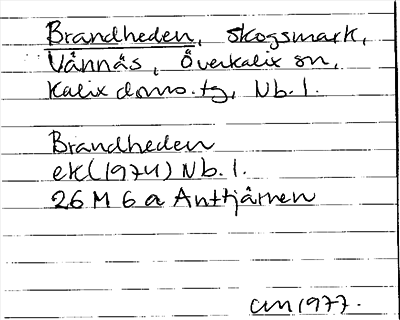 Brandheden, skogsmark,
Vännäs, Överkalix sn,
Kalix doms. tg, Nb. l.
Brandheden
ek (1974) Nb. l.
26 M 6 a Anttjärnen
am 1977.